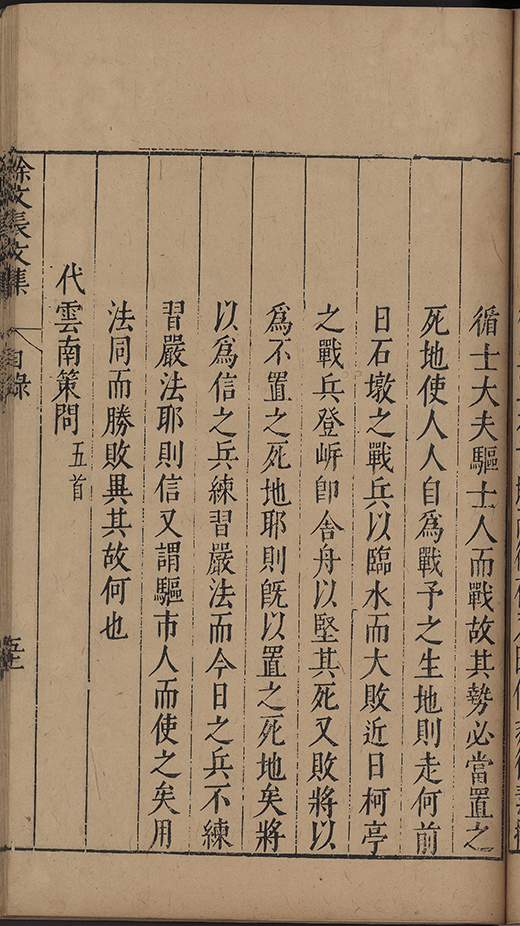 循士大夫驅士人而戰故其勢必當置之
死地使人人自爲戰予之生地則走何前
日石墩之戰兵以臨水而大敗近日柯亭
之戰兵登岍卽舍舟以堅其死又敗將以
爲不置之死地耶則旣以置之死地矣將
以爲信之兵練習嚴法而今日之兵不練
習嚴法耶則信又謂驅市人而使之矣用
法同而勝敗異其故何也
代雲南策問五首
徐文長文集 目錄